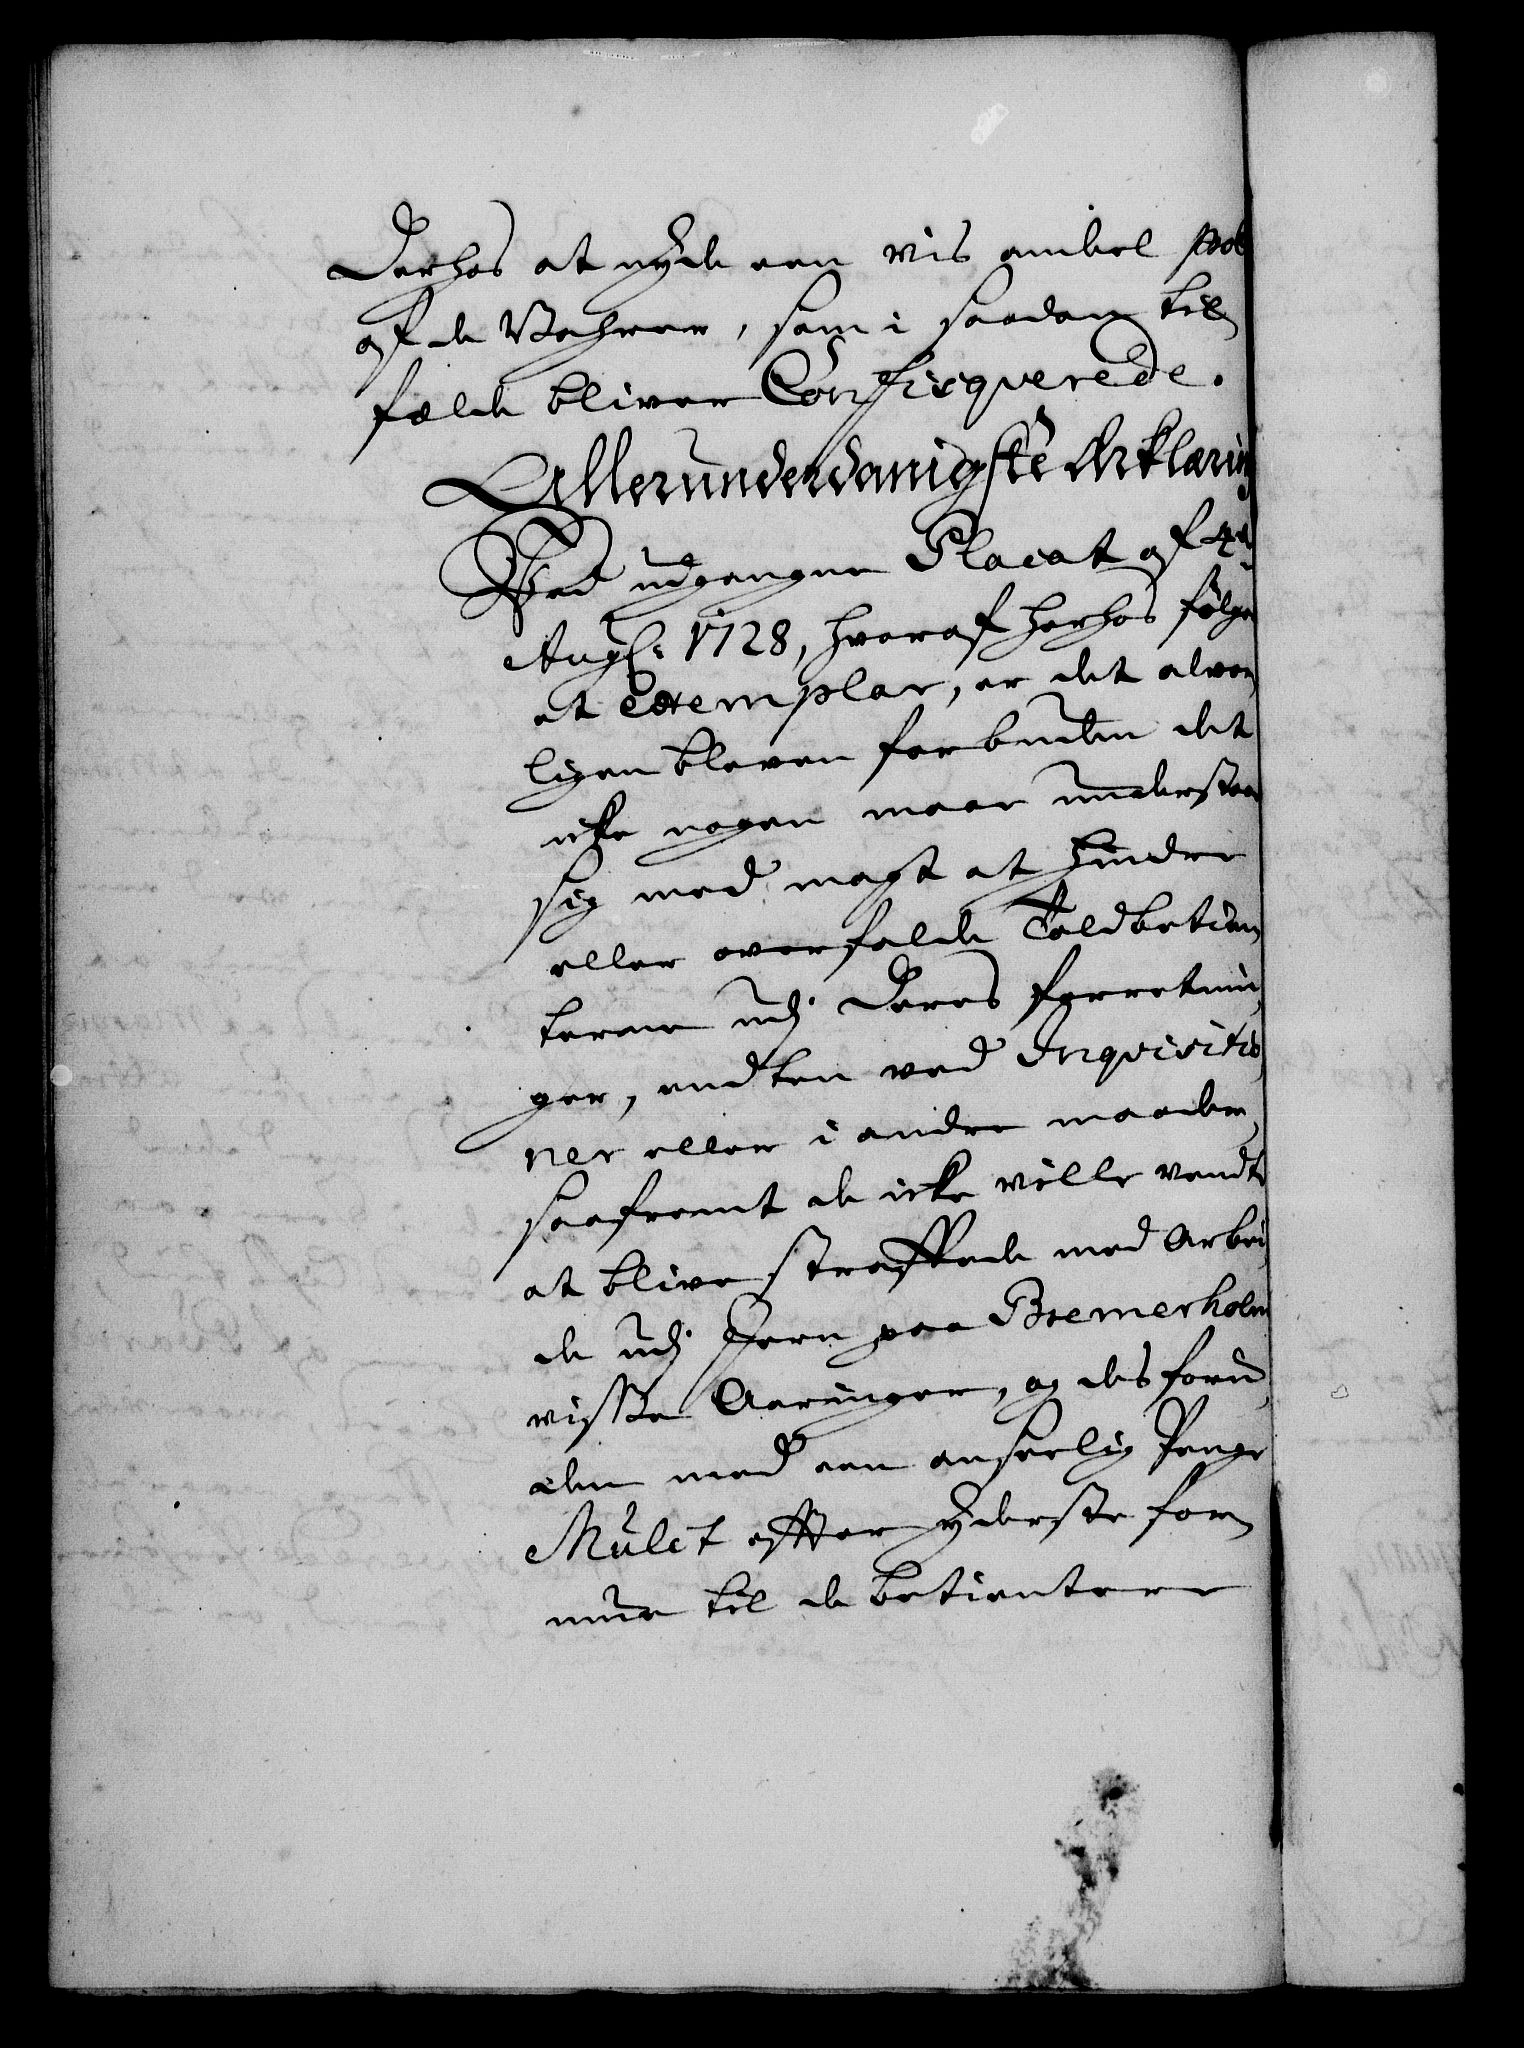 Derhos at nyde een vis andeel part
af de Vahrer, som i saadan till
fælde bliver Confisquerede.
Allerunderdanigste Erklæring
Ved udgangne Placat af 4de
Aug: 1728, hvoraf herhos følger
et Exemplar, er det alvor
ligen bleven forbuden det
icke nogen maae understaae
sig med magt at hindre
eller overfalde Toldbetien
terne udj deres forretnin,
ger, endten ved Inqvisitio,
ner eller i andre maader,
saafremt de icke ville vendte
at blive straffede med Arbei,
de udj Jern paa Bremerholm
visse Aaringer, og des foru,
den med een anseelig Penge
Mulct effter yderste for
mue til de betientere